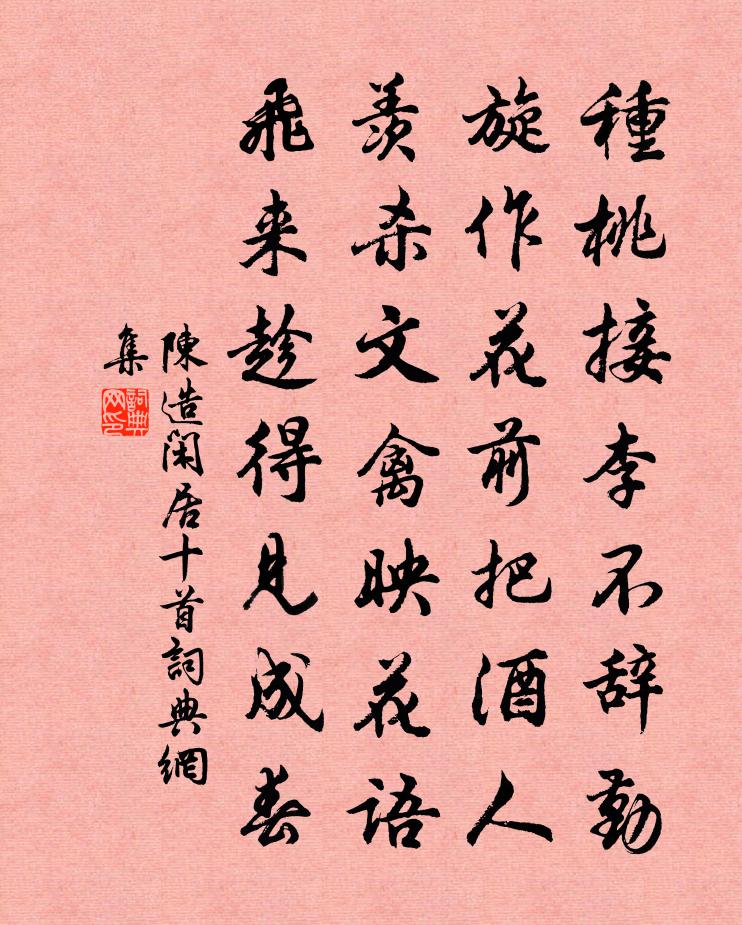 種桃接李不辞勤
旋作花前把酒人
羨杀文禽映花語
飛来趁得見成春
陳造閑居十首詞典網
集
詞典
网印